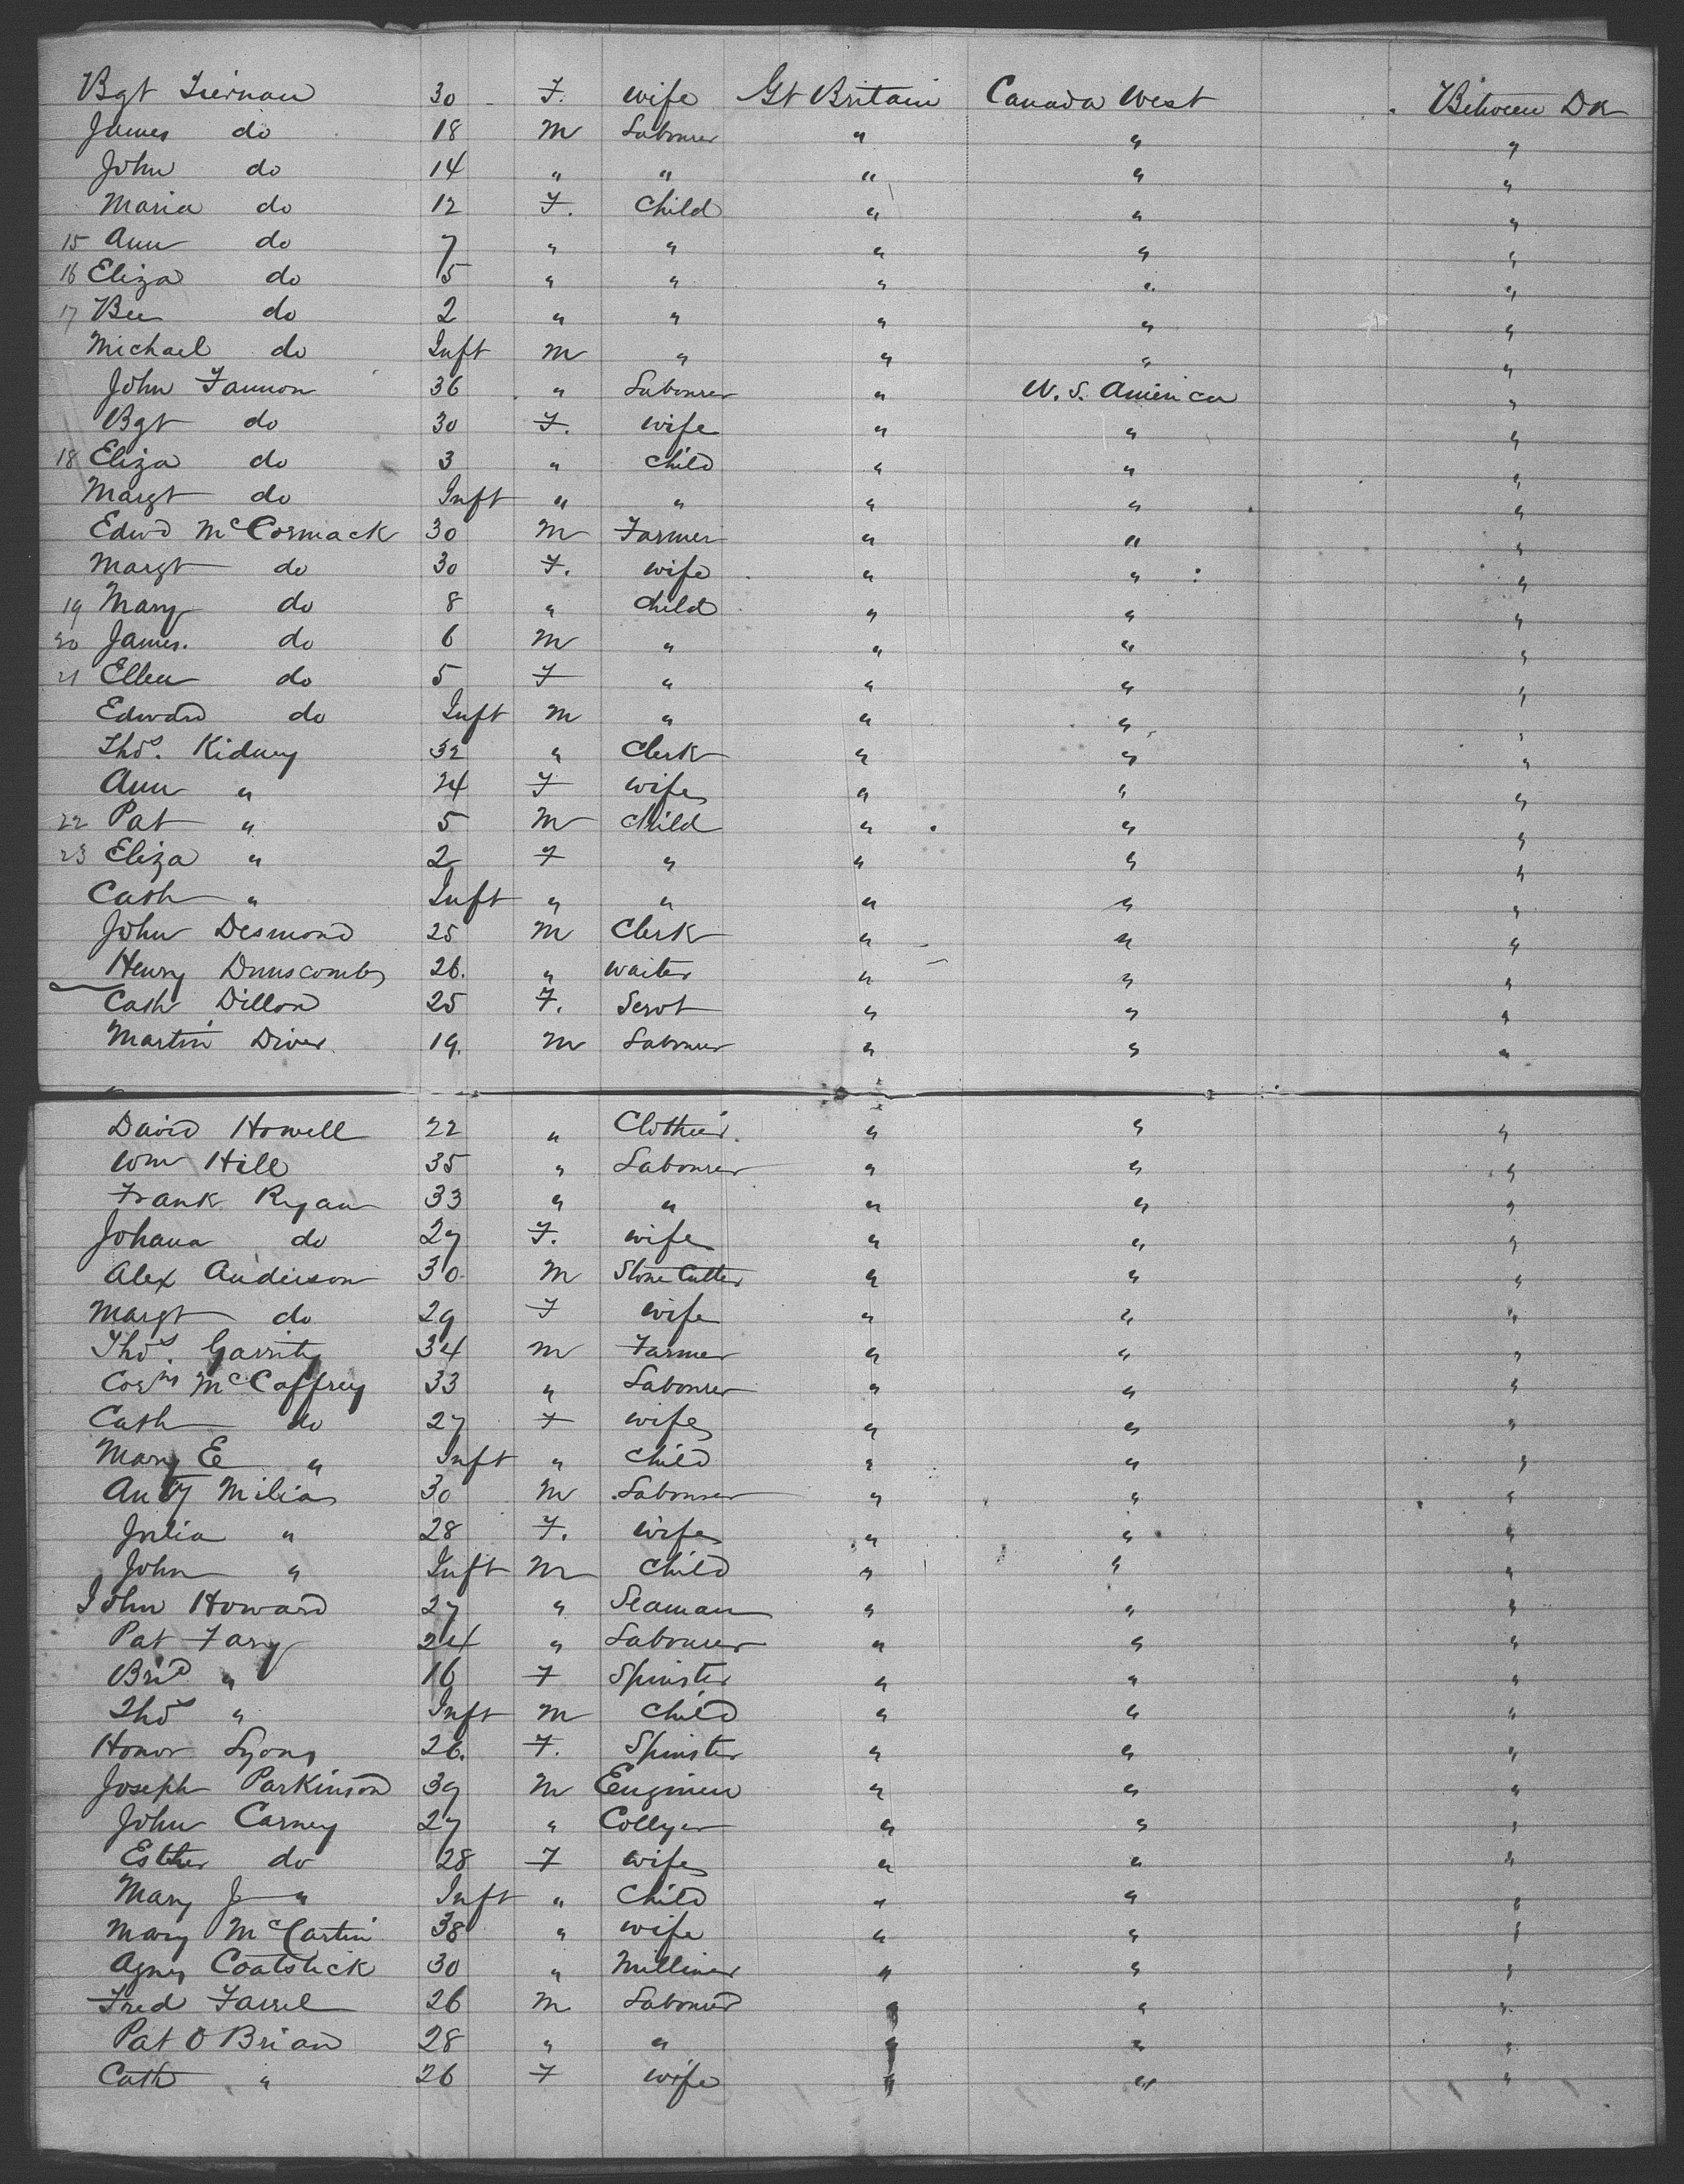 Bgt Tiernan 30 F. wife Gt Britain Canada West Between Dk
James do 18 M Labourer " " "
John do 14 " " " " "
Maria do 12 F. Child " " "
15 Ann do 7 " " " " "
16 Eliza do 5 " " " " "
17 Bee do 2 " " " " "
Michael do Inft M " " " "
John Fannon 36 " Labourer " U.S. America "
Bgt do 30 F. wife " " "
18 Eliza do 3 " child " " "
Margt do Inft " " " " "
Edwd McCormack 30 M Farmer " " "
Margt do 30 F. wife " " "
19 Mary do 8 " child " " "
20 James. do 6 M " " " "
21 Ellen do 5 F " " " "
Edward do Inft M " " " "
Thos. Kidney 32 " Clerk " " "
Ann " 24 F wife " " "
22 Pat " 5 M child " " "
23 Eliza " 2 F " " " "
Cath " Inft " " " " "
John Desmond 25 M Clerk " " "
Henry Dunscombe 26. " waiter " " "
Cath Dillon 25 F. Servt " " "
Martin Diver 19. M Labourer " " "
David Howell 22 " Clothier. " " "
Wm Hill 35 " Labourer " " "
Frank Ryan 33 " " " " "
Johana do 27 F. wife " " "
Alex Anderson 30. M Stone Cutter " " "
Margt do 29 F wife " " "
Thos. Garrity 34 M Farmer " " "
Corns McCaffrey 33 " Labourer " " "
Cath do 27 F wife " " "
Mary E " Inft " child " " "
Anty Milia 30 M Labourer " " "
Julia " 28 F. wife " " "
John " Inft M Child " " "
John Howard 27 " Seaman " " "
Pat Fary 24 " Labourer " " "
Brid " 16 F Spinster " " "
Thos " Inft M child " " "
Honor Lyons 26. F. Spinster " " "
Joseph Parkinson 39 M Engineer " " "
John Carney 27 " Collyer " " "
Esther do 28 F wife " " "
Mary J " Inft " Child " " "
Mary McCartin 38 " wife " " "
Agnes Coatslick 30 " Milliner " " "
Fred Farrel 26 M Labourer " " "
Pat O Brian 28 " " " " "
Cath " 26 F wife " " "